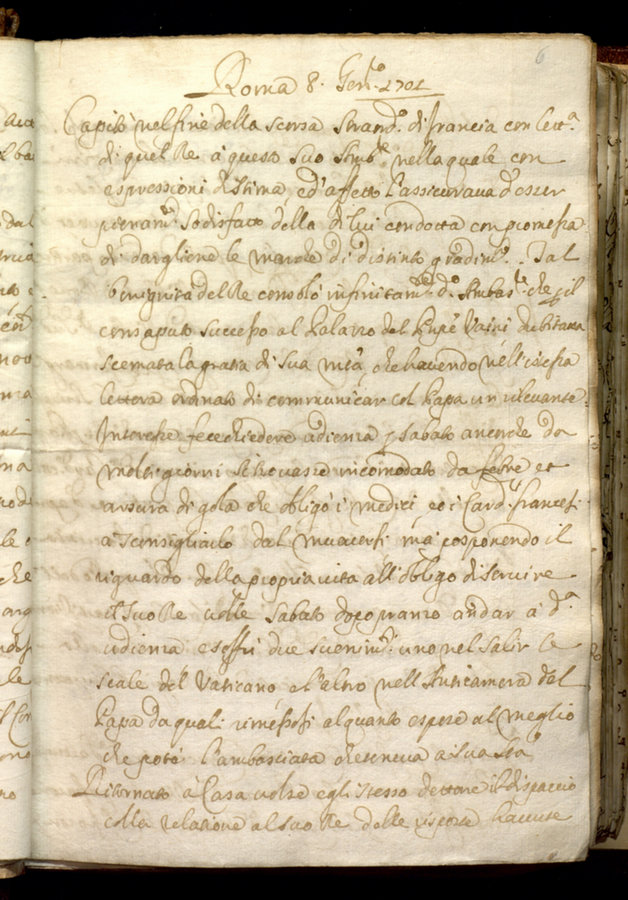 6
Roma 8. Gen.º 1701
Capitò nel fine della scorsa Strand.º di francia con lett.ª
di quel Re a questo suo Amb.re nella quale con
espressioni di stima, ed'affetto l'assicurava d'esser
pienam.te sodisfatto della di lui condotta con promessa
di dargliene le marche di distinto gradim.to. Tal
benignità del Re consolò infinitam.te d.º Ambas.re che p il
consaputo successo al Palazzo del Prñpe Vaini dubitava
scemata la gratia di Sua Mtà, che havendo nell'istessa
lettera ordinato di communicar col Papa un rilevante
Interesse fece chiedere udienza p Sabato ancorche da
molti giorni si trovasse incomodato da febre et
arsura di gola che obligò i medici, et i Card.li francesi
a sconsigliarlo dal muoversi, mà posponendo il
riguardo della propria vita all'obligo di servire
il suo Re volle Sabato dopo pranzo andar a d.ª
udienza e soffrì due svenim.ti uno nel salir le
scale del Vaticano e l'altro nell'Anticamera del
Papa da quali rimessosi alquanto espose al meglio
che potè l'ambasciata che teneva a Sua Stà
Ritornato à Casa volse egli stesso dettare il dispaccio
colla relatione al suo Re delle risposte havute